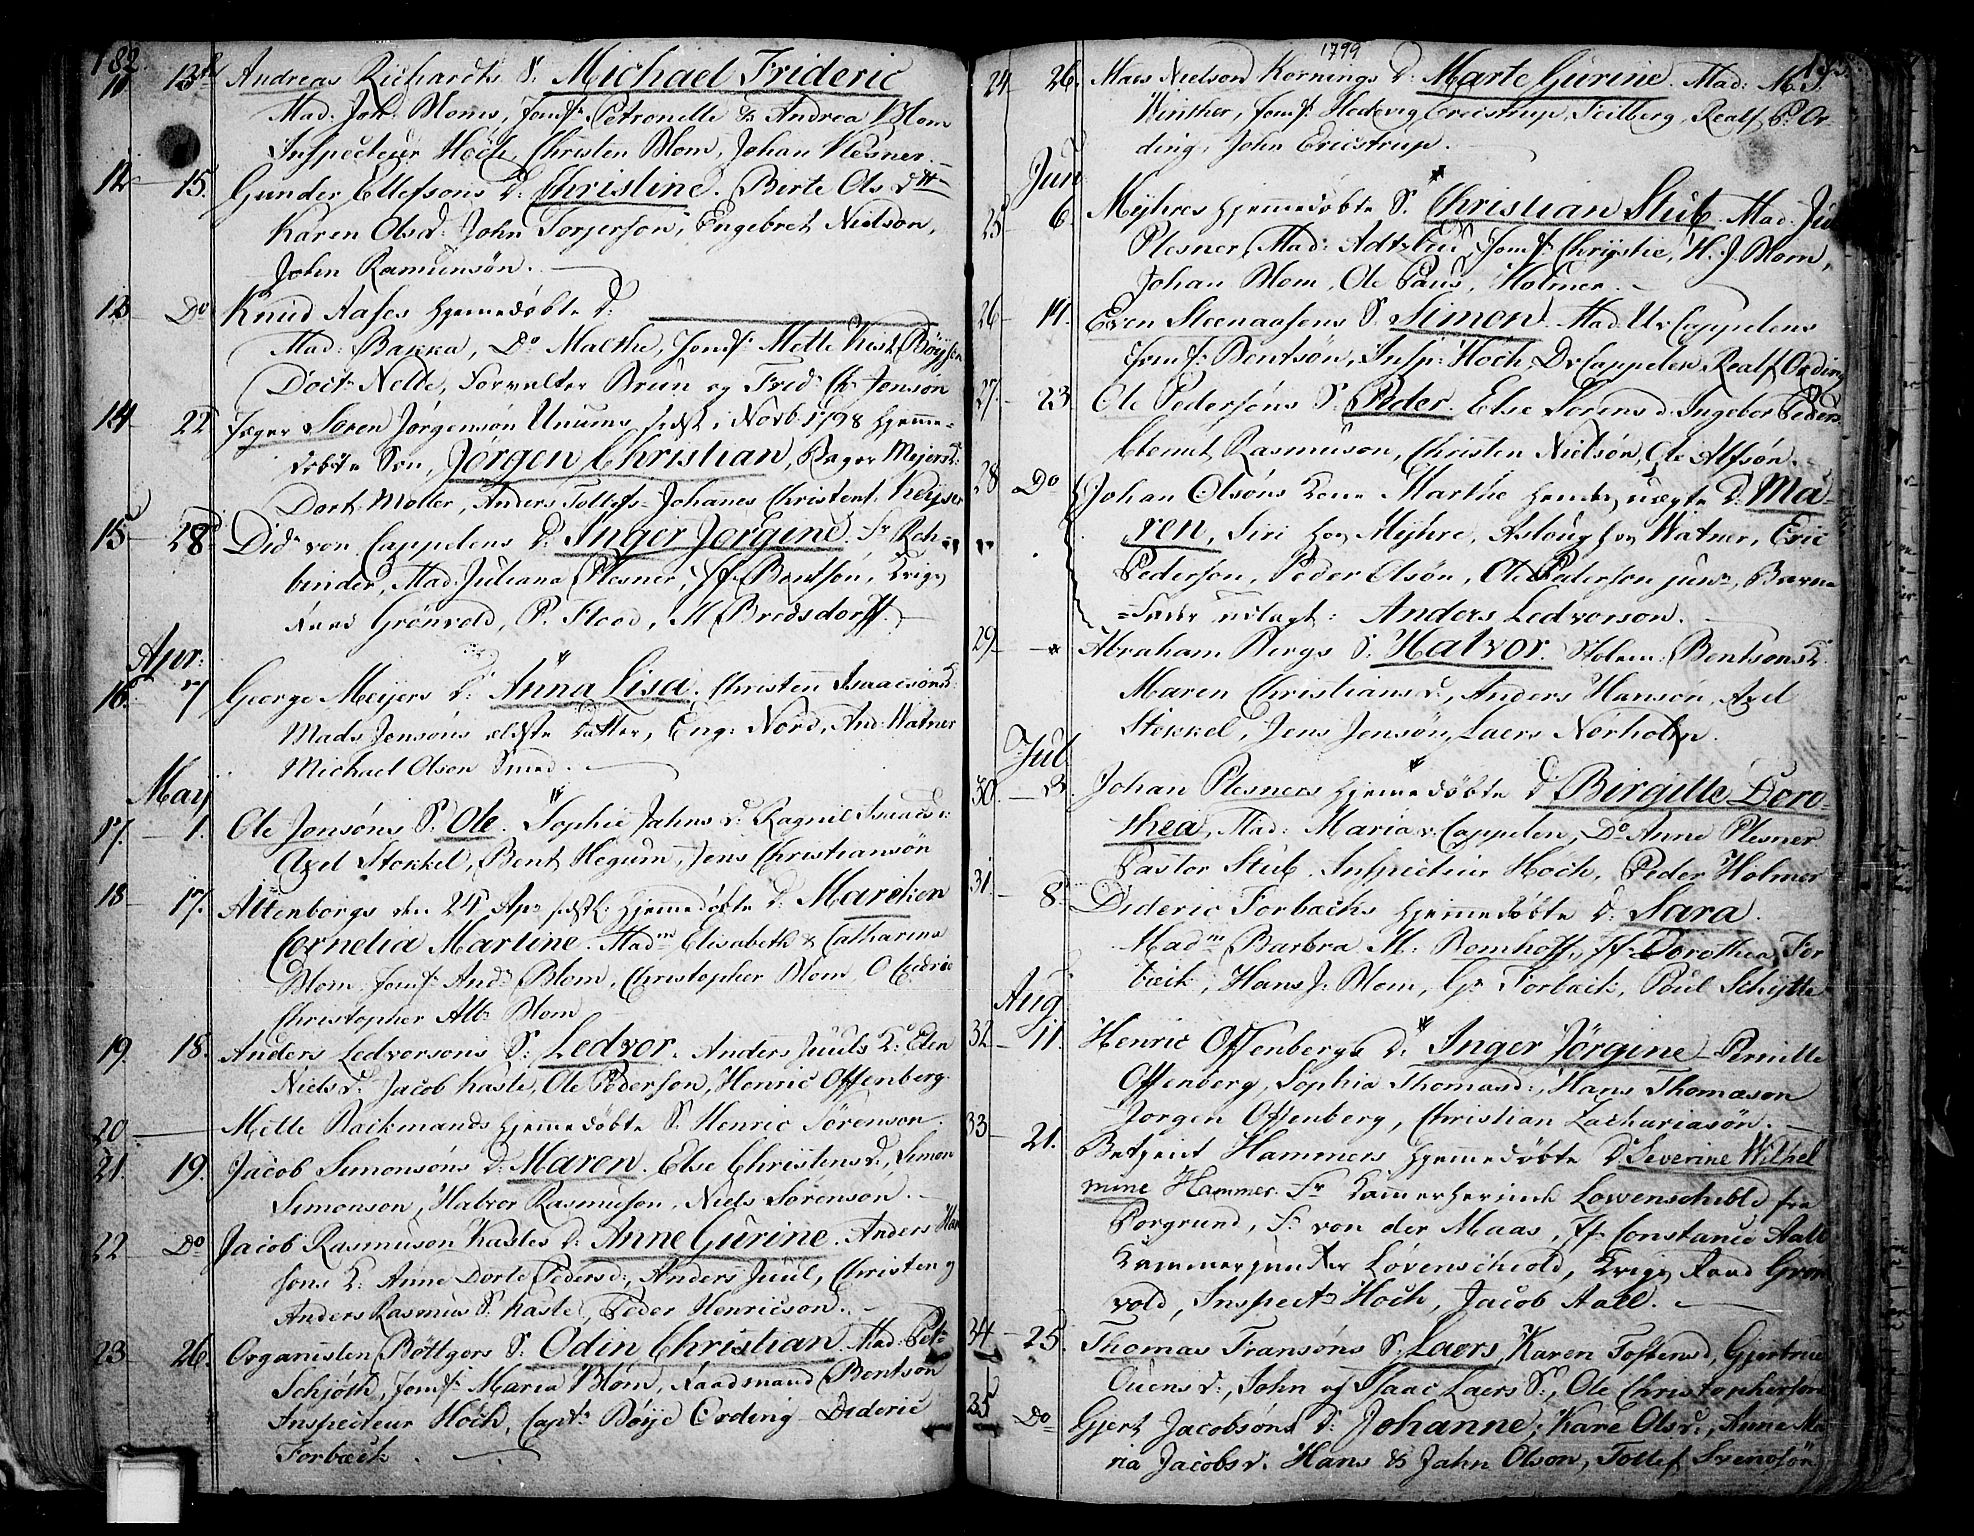 182.
11 13de Andreas Richardts S. Michael Frideric
Mad: Joh. Bloms, Jomfr. Petronelle & Andrea Blom
Inspecteur Höch, Christen Blom, Johan Plesner.
12 15. Gunder Ellefsons d: Christine. Birte Ols dtt
Karen Olsd: John Torjerson, Engebret Nielson,
John Ramunsön.
13 Do Knud Aases hjemmedøbte d:
Mad: Bakka, Do Malthe, Jomfr. Mette Kest. Böyssen
Doct. Nelde, Forvalter Brun og Fred. Chr. Jensön
14 22 Jæger Sören Jörgensön Unums sidst i Novb 1798 hjemme-
døbte Søn, Jörgen Christian, Bager Mejers K:
Dort: Møller, Anders Tollefs. Johanes Christens. Keyser
15 28 Did. von Cappelens d: Inger Jörgine. Fr Reh-
binder, Mad. Juliana Plesner, Jf. Bentsön, Krigs
Raad Grönvold, P. Flood, M Bredsdorff.
Apr:
16. 7 George Meijers d: Anna Lisa. Christen Isaacsöns K:
Mads Jensöns ældste datter, Eng: Nord, And: Watner
Michael Olsen Smed.
May
17. 1. Ole Jonsöns S. Ole. Sophie Jahns d. Ragnil Isaacs d:
Axel Stokkel, Bent Hegum, Jens Christiansön
18 17. Altenborgs den 24 Apr. sidstl: hjemmedøbte d: Mareken
Cornelia Martine. Mad.m Elisabeth & Catharina
Blom, Jomfr. And. Blom, Christopher Blom, O Cudrio
Christopher Alb. Blom
19. 18. Anders Ledvorsons S. Ledvor. Anders Juuls K: Elen
Niels d. Jacob Kaste, Ole Pederson, Henric Offenberg.
20 Mette Backmands hjemmedøbte S. Henric Sörenson.
21. 19. Jacob Simonsöns d: Maren. Else Christens d:, Simon
Simonson, Halvor Rasmuson, Niels Sörenson.
22 Do Jacob Rasmuson Kastes d: Anne Gurine. Anders Han
sons K: Anne Dorte Peders d:, Anders Juul, Christen og
Anders Rasmus S. Kaste, Peder Henricson.
23 26. Organisten Böttgers S. Odin Christian. Mad: Pet.
Schjöth, Jomfr. Maria Blom, Raadmand Bentsön
Inspecteur Höch, Capt. Böye Ording Dideric
Forbæck.
1799
24 26. Maes Nielson Kornings d: Marte Gurine. Mad: M. S.
Winther, Jomfr. Hedevig Ericstrup, Feilberg, Realf P. Or-
ding, John Ericstrup.
Jun
25 6. Mejhres hjemmedøbte S. Christian Stub. Mad: Jul
Plesner, Mad: Adtzlew, Jomfr. Chrystie, H. J. Blom,
Johan Blom, Ole Paus, Holmer.
26 14. Even Steenaasens S. Simon. Mad. Uv Cappelens
Jomfr. Bentsön, Insp: Höch, Dv Cappelen, Realf Ording
27. 23 Ole Pedersöns S. Peder. Else Sorens d. Ingebor Peders
Clemet Rasmuson, Christen Nielsön, Ole Alfsön.
28 Do Johan Olsöns Kone Marthe hendes uægte d: Ma-
ren, Siri hos Mejhre, Aslöug hos Watner, Eric
Pederson, Peder Olsön, Ole Pederson jun., Barne
=Fader udlagt: Anders Ledvorson.
29 Abraham Bergs S. Halvor. Holm: Bentsons K.
Maren Christians d:, Anders Hansön, Axel
Stokkel, Jens Jensön, Laers Nörholm.
Jul
30. 3. Johan Plesners hjemmedøbte d Birgitte Doro-
thea, Mad: Maria v: Cappelen, Do Anne Plesner
Pastor Stub. Inspecteur Höch, Peder Holmer
31. 8. Dideric Forbæchs hjemmedøbte d: Sara.
Mad.m Barbra M: Bomhoff, Jf. Dorothea For
bæck, Hans J. Blom, Gr Forbæck, Poul Schytte
Aug
32 11. Henric Offenbergs d: Inger Jörgine Pernille
Offenberg, Sophia Thomasd:, Hans Thomæson
Jörgen Offenberg, Christian Zachariasön.
33 21. Betjent Hammers hjemmedøbte d: Severine Wilhel
mine Hammer. Fr Kamerherinde Lowenschiold fra
Porgrund, Fr. von der Maas, Jf. Constance Aall
Kammerjunker Lövenschiold, Krigs Raad Grön
vold, Inspect. Höch, Jacob Aall.
34 25. Thomas Fransöns S. Laers, Karen Tostensd, Gjertrue
Ouens d:, John og Isaac Laers S., Ole Christopherson
35 Do Gjert Jacobsöns d: Johanne, Kare Ols d:, Anne Ma
ria Jacobs d: Hans & Jahn Olson, Tollef Svensön